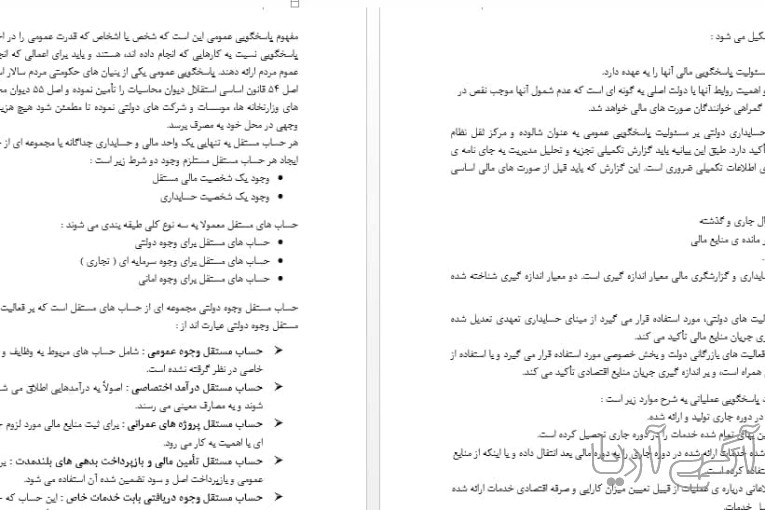 مفهوم پاسخگویی عمومی این است که شخص یا اشخاص که قدرت عمومی را در اخ
پاسخگویی نسبت به کارهایی که انجام داده اند، هستند و باید برای اعمالی که انج
عموم مردم ارائه دهند. پاسخگویی عمومی یکی از بنیان های حکومتی مردم سالار اس
اصل ۵۴ قانون اساسی استقلال دیوان محاسبات را تأمین نموده و اصل ۵۵ دیوان مح
های وزارتخانه ها، موسسات و شرکت های دولتی نموده تا مطمئن شود هیچ هزین
وجهی در محل خود به مصرف برسد.
هر حساب مستقل به تنهایی یک واحد مالی و حسابداری جداگانه یا مجموعه ای از ح
ایجاد هر حساب مستقل مستلزم وجود دو شرط زیر است :
• وجود یک شخصیت مالی مستقل
• وجود یک شخصیت حسابداری
حساب های مستقل معمولا به سه نوع کلی طبقه بندی می شوند :
• حساب های مستقل برای وجوه دولتی
• حساب های مستقل برای وجوه سرمایه ای ( تجاری )
• حساب های مستقل برای وجوه امانی
حساب مستقل وجوه دولتی مجموعه ای از حساب های مستقل است که بر فعالیت
مستقل وجوه دولتی عبارت اند از :
➢ حساب مستقل وجوه عمومی : شامل حساب های مربوط به وظایف و
خاصی در نظر گرفته نشده است.
➢ حساب مستقل درآمد اختصاصی : اصولاً به درآمدهایی اطلاق می ش
شوند و به مصارف معینی می رسند.
➢ حساب مستقل پروژه های عمرانی : برای ثبت منابع مالی مورد لزوم ج
ای با اهمیت به کار می رود.
➢ حساب مستقل تأمین مالی و بازپرداخت بدهی های بلندمدت : بر
عمومی و بازپرداخت اصل و سود تضمین شده آن استفاده می شود.
➢ حساب مستقل وجوه دریافتی بابت خدمات خاص : این حساب که ح
کیل می شود :
سئولیت پاسخگویی مالی آنها را به عهده دارد.
و اهمیت روابط آنها با دولت اصلی به گونه ای است که عدم شمول آنها موجب نقص در
گمراهی خوانندگان صورت های مالی خواهد شد.
حسابداری دولتی بر مسئولیت پاسخگویی عمومی به عنوان شالوده و مرکز ثقل نظام
أکید دارد. طبق این بیانیه باید گزارش تکمیلی تجزیه و تحلیل مدیریت به جای نامه ی
ی اطلاعات تکمیلی ضروری است. این گزارش که باید قبل از صورت های مالی اساسی
ال جاری و گذشته
ر مانده ی منابع مالی
ابداری و گزارشگری مالی معیار اندازه گیری است. دو معیار اندازه گیری شناخته شده
لیت های دولتی، مورد استفاده قرار می گیرد از مبنای حسابداری تعهدی تعدیل شده
ی جریان منابع مالی تأکید می کند.
فعالیت های بازرگانی دولت و بخش خصوصی مورد استفاده قرار می گیرد و با استفاده از
همراه است، و بر اندازه گیری جریان منابع اقتصادی تأکید می کند.
پاسخگویی عملیاتی به شرح موارد زیر است :
در دوره جاری تولید و ارائه شده.
ین بهای تمام شده خدمات را در دوره جاری تحصیل کرده است.
شده خدمات ارائه شده در دوره جاری را به دوره مالی بعد انتقال داده و یا اینکه از منابع
تفاده کرده است.
لاعاتی درباره ی عملیات از قبیل تعیین میزان کارایی و صرفه اقتصادی خدمات ارائه شده
صیل خدمات.
آگهی آریا